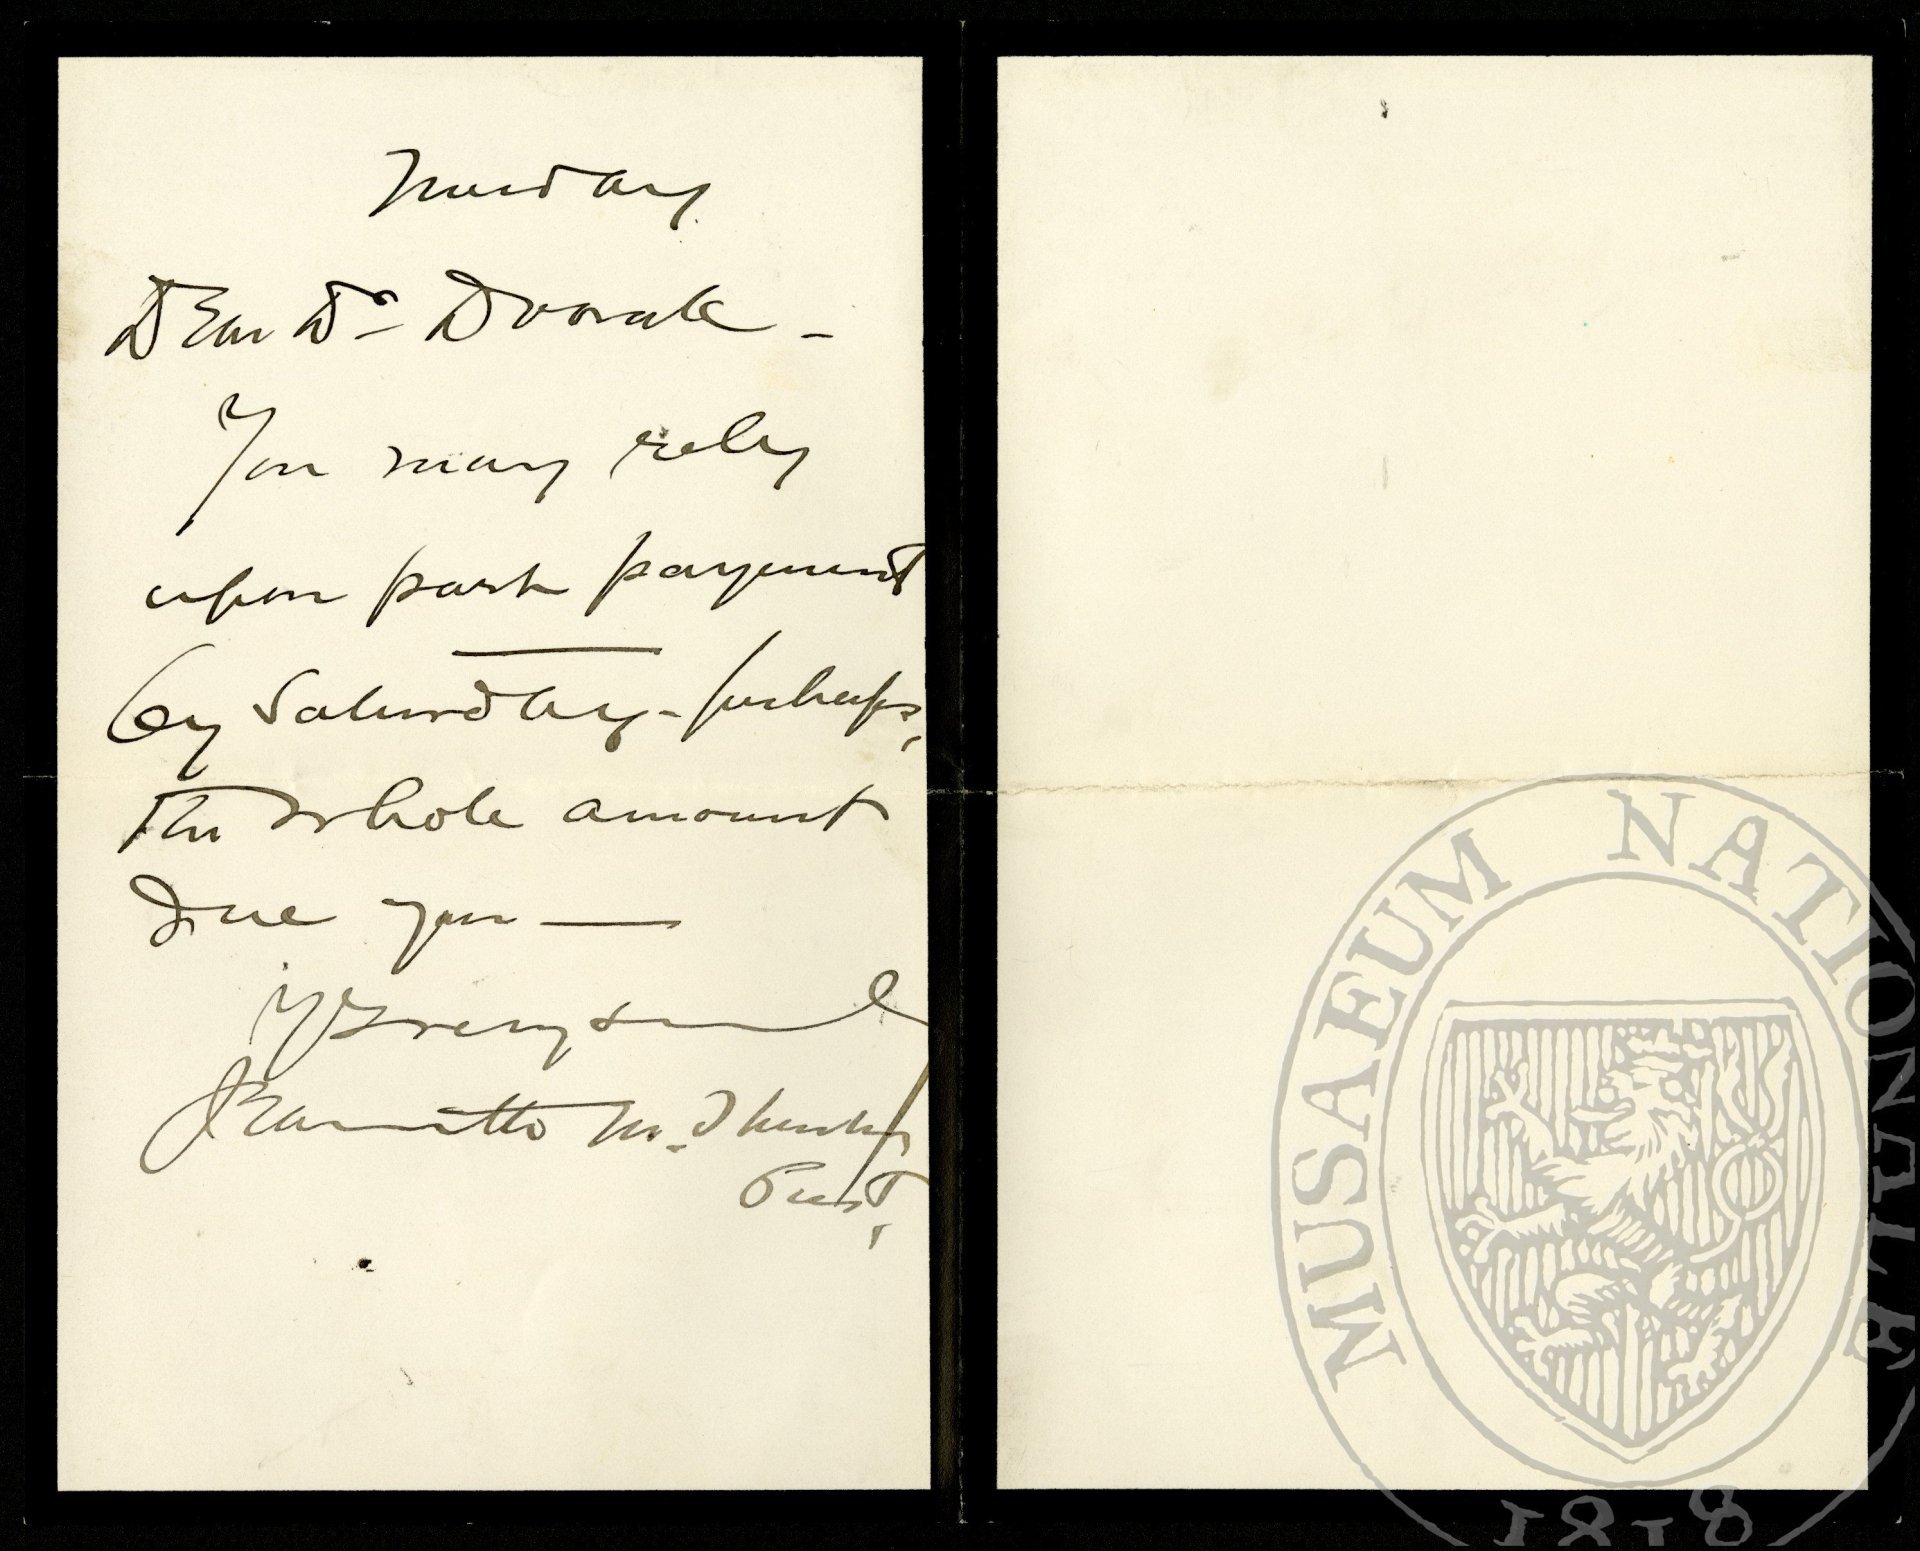 Dear Dr Dvorak -
You may rely
upon part payment
by Saturday - perhaps,
the whole amount
due you —
Very
Jeannette M. Thurber
Prest,
MUSAEUM NATIONALE
1818